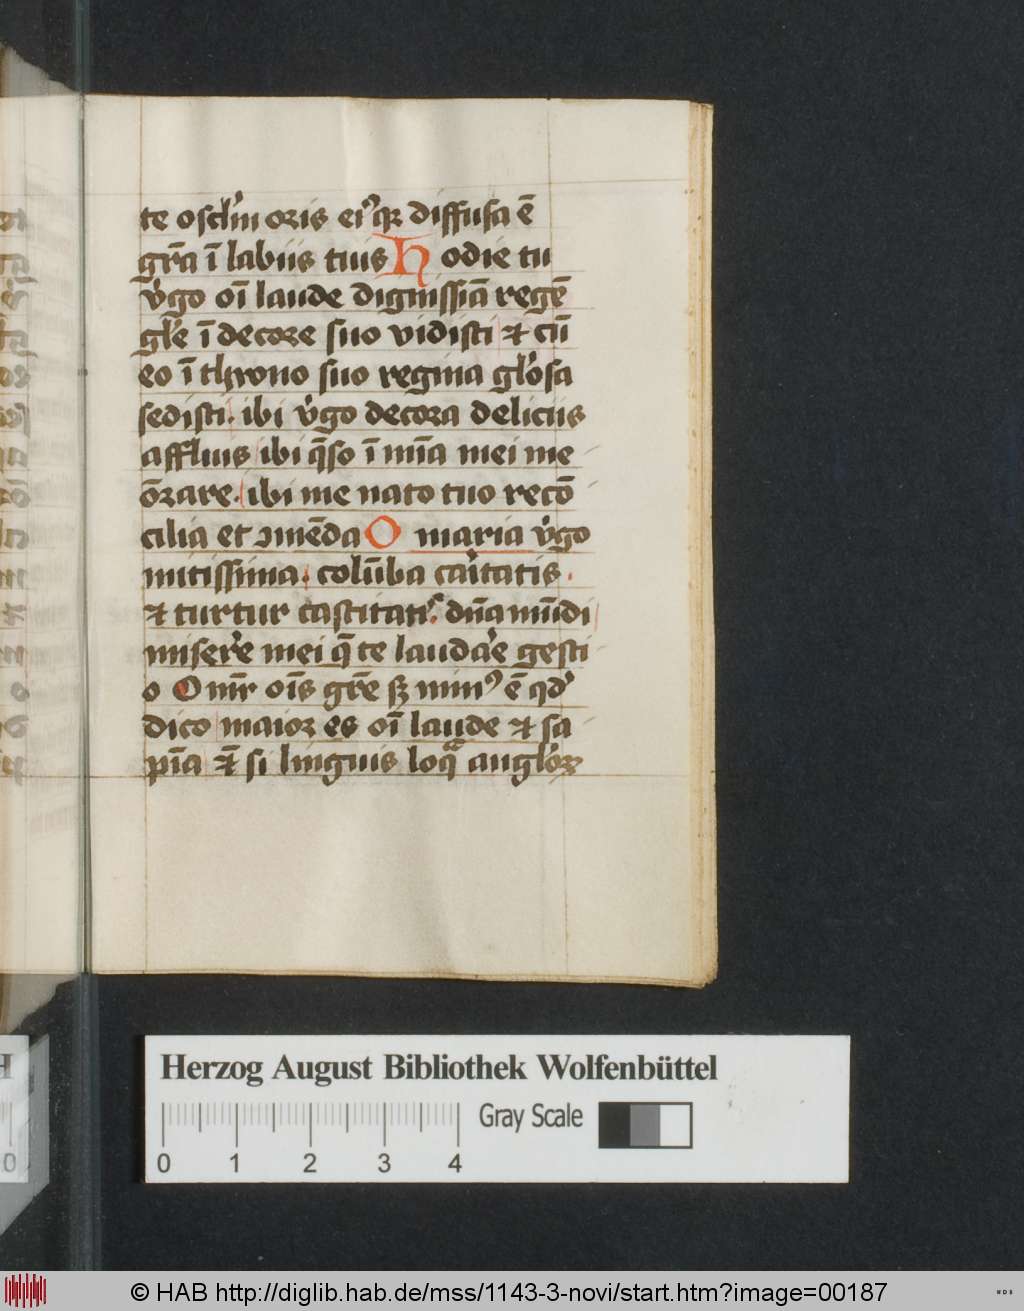 te osclm̄ oris ei⁹ qr diffusa ē
grā ī labiis tuis Hodie tu
v̓go oī laude dignissiā regē
gl̓e ī decore suo vidisti et cū
eo ī throno suo regina gl̓osa
sedisti. ibi v̓go decora deliciis
affluis ibi q̄so ī mīa mei me
ōrare. ibi me nato tuo recō
cilia et ꝯmēda O maria v̓go
mitissima. colūba caritatis.
et turtur castitatis. dn̄a mūdi
miserere mei q̄ te laudare gesti
o O mr̄ oīs grē sꝫ min⁹ ē qd̓
dico maior es oī laude et sa
pīa et̄ si linguis loqᷓ anglorꝝ
Herzog August Bibliothek Wolfenbüttel
Gray Scale
0 1 2 3 4
© HAB http://diglib.hab.de/mss/1143-3-novi/start.htm?image=00187